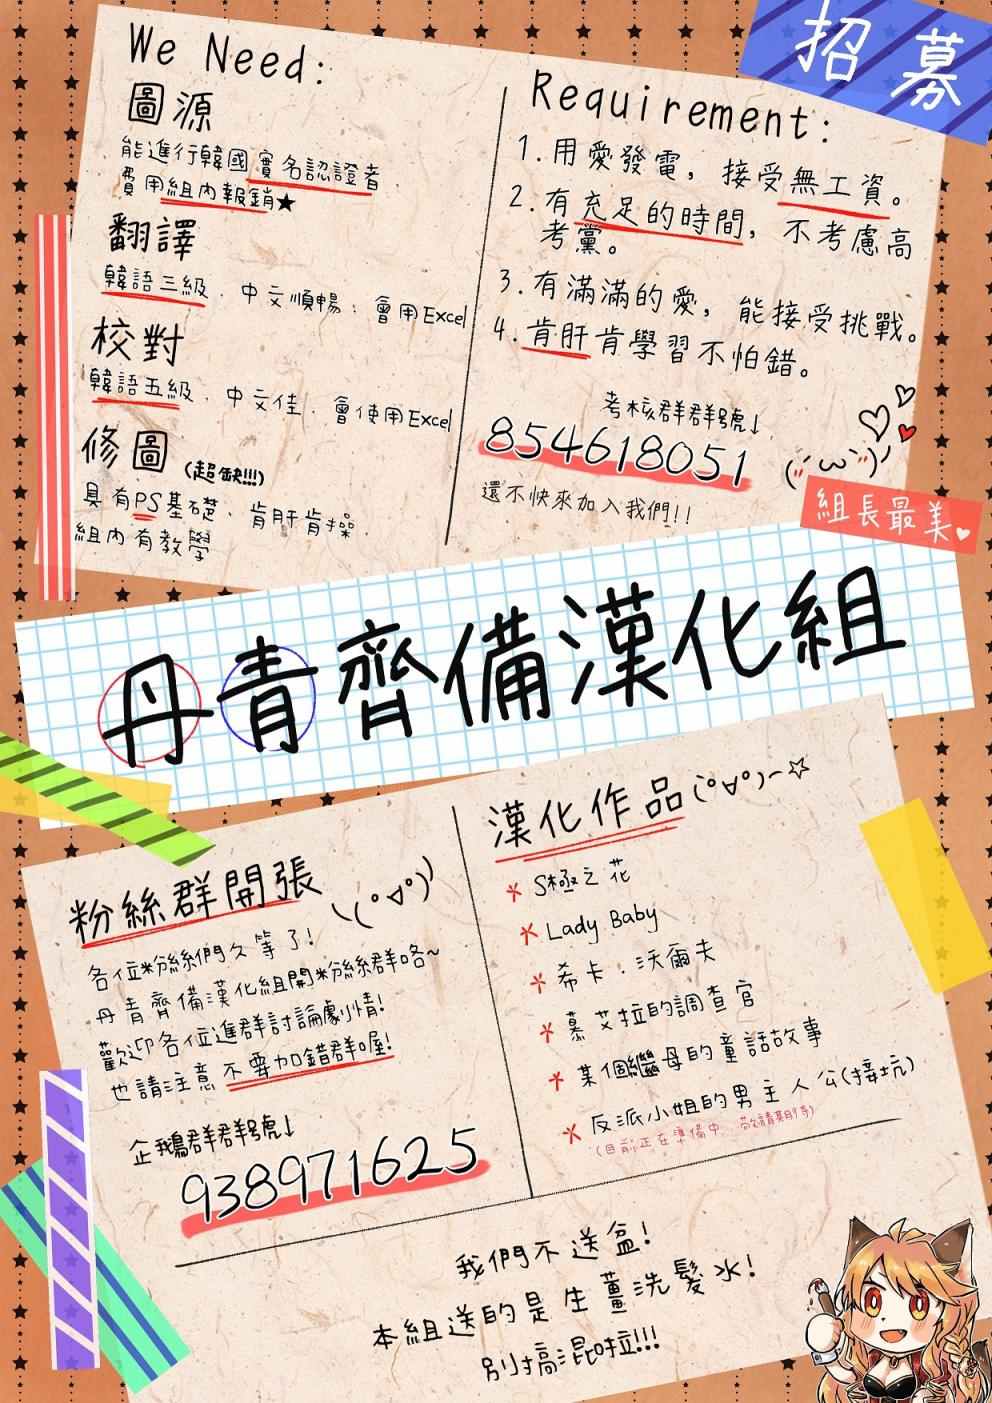 招募
We Need:
圖源
能進行韓國實名認證者
費用組內報銷★
翻譯
韓語三級、中文順暢、會用Excel
校對
韓語五級、中文佳、會使用Excel
修圖(超缺!!!)
具有PS基礎、肯肝肯操
組內有教學
Requirement:
1.用愛發電，接受無工資。
2.有充足的時間，不考慮高
考黨。
3.有滿滿的愛，能接受挑戰。
4.肯肝肯學習不怕錯。
考核群群號↓
854618051
還不快來加入我們!!
組長最美
丹青齊備漢化組
粉絲群開張
各位粉絲們久等了!
丹青齊備漢化組開粉絲群咯~
歡迎各位進群討論劇情!
也請注意不要加錯群喔!
企鵝群群號↓
938971625
漢化作品
S極之花
Lady Baby
希卡·沃爾夫
慕艾拉的調查官
某個繼母的童話故事
反派小姐的男主人公(接坑)
(目前正在準備中、敬請期待)
我們不送盆!
本組送的是生薑洗髮水!
別搞混啦!!!